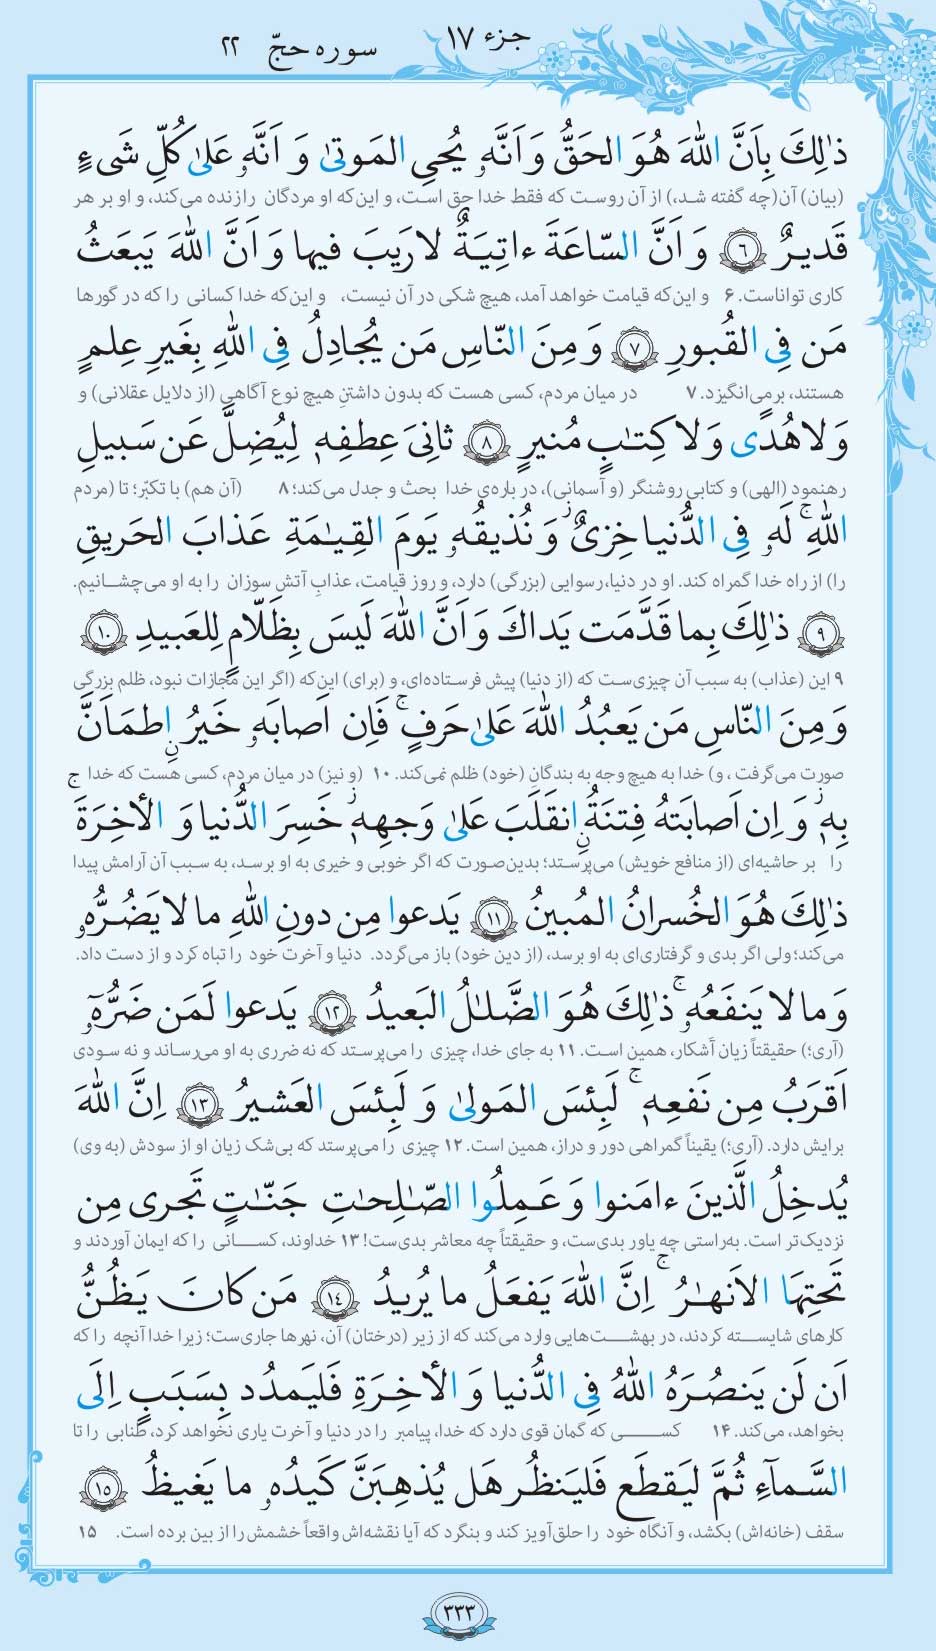 جزء ۱۷
سوره حجّ ۲۲
ذٰلِكَ بِاَنَّ اللّٰهَ هُوَ الحَقُّ وَ اَنَّهٗ یُحیِی المَوتیٰ وَ اَنَّهٗ عَلیٰ كُلِّ شَیءٍ
(بیان) آن(چه گفته شد،) از آن روست که فقط خدا حق است، و این‌که او مردگان را زنده می‌کند، و او بر هر
قَدیرٌ ﴿٦﴾ وَ اَنَّ السّاعَةَ ءاتِیَةٌ لا رَیبَ فیها وَ اَنَّ اللّٰهَ یَبعَثُ
کاری تواناست. ۶ و این‌که قیامت خواهد آمد، هیچ شکی در آن نیست، و این‌که خدا کسانی را که در گورها
مَن فِی القُبورِ ﴿٧﴾ وَ مِنَ النّاسِ مَن یُجادِلُ فِی اللّٰهِ بِغَیرِ عِلمٍ
هستند، برمی‌انگیزد. ۷ در میان مردم، کسی هست که بدون داشتنِ هیچ نوع آگاهی (از دلایل عقلانی) و
وَ لا هُدًی وَ لا كِتٰبٍ مُنیرٍ ﴿٨﴾ ثانِیَ عِطفِهٖ لِیُضِلَّ عَن سَبیلِ
رهنمود (الهی) و کتابی روشنگر (و آسمانی)، در باره‌ی خدا بحث و جدل می‌کند؛ ۸ (آن هم) با تکبّر؛ تا (مردم
اللّٰهِ ۚ لَهٗ فِی الدُّنیا خِزیٌ ۖ وَ نُذیقُهٗ یَومَ القِیٰمَةِ عَذابَ الحَریقِ
را) از راه خدا گمراه کند. او در دنیا، رسوایی (بزرگی) دارد، و روز قیامت، عذابِ آتش سوزان را به او می‌چشانیم.
﴿٩﴾ ذٰلِكَ بِما قَدَّمَت یَداكَ وَ اَنَّ اللّٰهَ لَیسَ بِظَلّامٍ لِلعَبیدِ ﴿١٠﴾
۹ این (عذاب) به سبب آن چیزی‌ست که (از دنیا) پیش فرستاده‌ای، و (برای) این‌که (اگر این مجازات نبود، ظلم بزرگی
وَ مِنَ النّاسِ مَن یَعبُدُ اللّٰهَ عَلیٰ حَرفٍ ۚ فَاِن اَصابَهٗ خَیرٌ اِطمَاَنَّ
صورت می‌گرفت ، و) خدا به هیچ وجه به بندگانِ (خود) ظلم نمی‌کند. ۱۰ (و نیز) در میان مردم، کسی هست که خدا
بِهٖ ۖ وَ اِن اَصابَتهُ فِتنَةٌ اِنقَلَبَ عَلیٰ وَجهِهٖ خَسِرَ الدُّنیا وَ الأخِرَةَ ۚ
را بر حاشیه‌ای (از منافع خویش) می‌پرستد؛ بدین‌صورت که اگر خوبی و خیری به او برسد، به سبب آن آرامش پیدا
ذٰلِكَ هُوَ الخُسرانُ المُبینُ ﴿١١﴾ یَدعوا مِن دونِ اللّٰهِ ما لا یَضُرُّهٗ
می‌کند؛ ولی اگر بدی و گرفتاری‌ای به او برسد، (از دین خود) باز می‌گردد. دنیا و آخرت خود را تباه کرد و از دست داد.
وَ ما لا یَنفَعُهٗ ۚ ذٰلِكَ هُوَ الضَّلٰلُ البَعیدُ ﴿١٢﴾ یَدعوا لَمَن ضَرُّهٗٓ
(آری؛) حقیقتاً زیان آشکار، همین است. ۱۱ به جای خدا، چیزی را می‌پرستد که نه ضرری به او می‌رساند و نه سودی
اَقرَبُ مِن نَفعِهٖ ۚ لَبِئسَ المَولیٰ وَ لَبِئسَ العَشیرُ ﴿١٣﴾ اِنَّ اللّٰهَ
برایش دارد. (آری؛) یقیناً گمراهی دور و دراز، همین است. ۱۲ چیزی را می‌پرستد که بی‌شک زیان او از سودش (به وی)
یُدخِلُ الَّذینَ ءامَنوا وَ عَمِلُوا الصّٰلِحٰتِ جَنّٰتٍ تَجری مِن
نزدیک‌تر است. به‌راستی چه یاور بدی‌ست، و حقیقتاً چه معاشر بدی‌ست! ۱۳ خداوند، کسانی را که ایمان آوردند و
تَحتِهَا الاَنهٰرُ ۚ اِنَّ اللّٰهَ یَفعَلُ ما یُریدُ ﴿١٤﴾ مَن كانَ یَظُنُّ
کارهای شایسته کردند، در بهشت‌هایی وارد می‌کند که از زیر (درختان) آن، نهرها جاری‌ست؛ زیرا خدا آنچه را که
اَن لَن یَنصُرَهُ اللّٰهُ فِی الدُّنیا وَ الأخِرَةِ فَلیَمدُد بِسَبَبٍ اِلَی
بخواهد، می‌کند. ۱۴ کسی که گمان قوی دارد که خدا، پیامبر را در دنیا و آخرت یاری نخواهد کرد، طنابی را تا
السَّمآءِ ثُمَّ لیَقطَع فَلیَنظُر هَل یُذهِبَنَّ كَیدُهٗ ما یَغیظُ ﴿١٥﴾
سقف (خانه‌اش) بکشد، و آنگاه خود را حلق‌آویز کند و بنگرد که آیا نقشه‌اش واقعاً خشمش را از بین برده است. ۱۵
۳۳۳